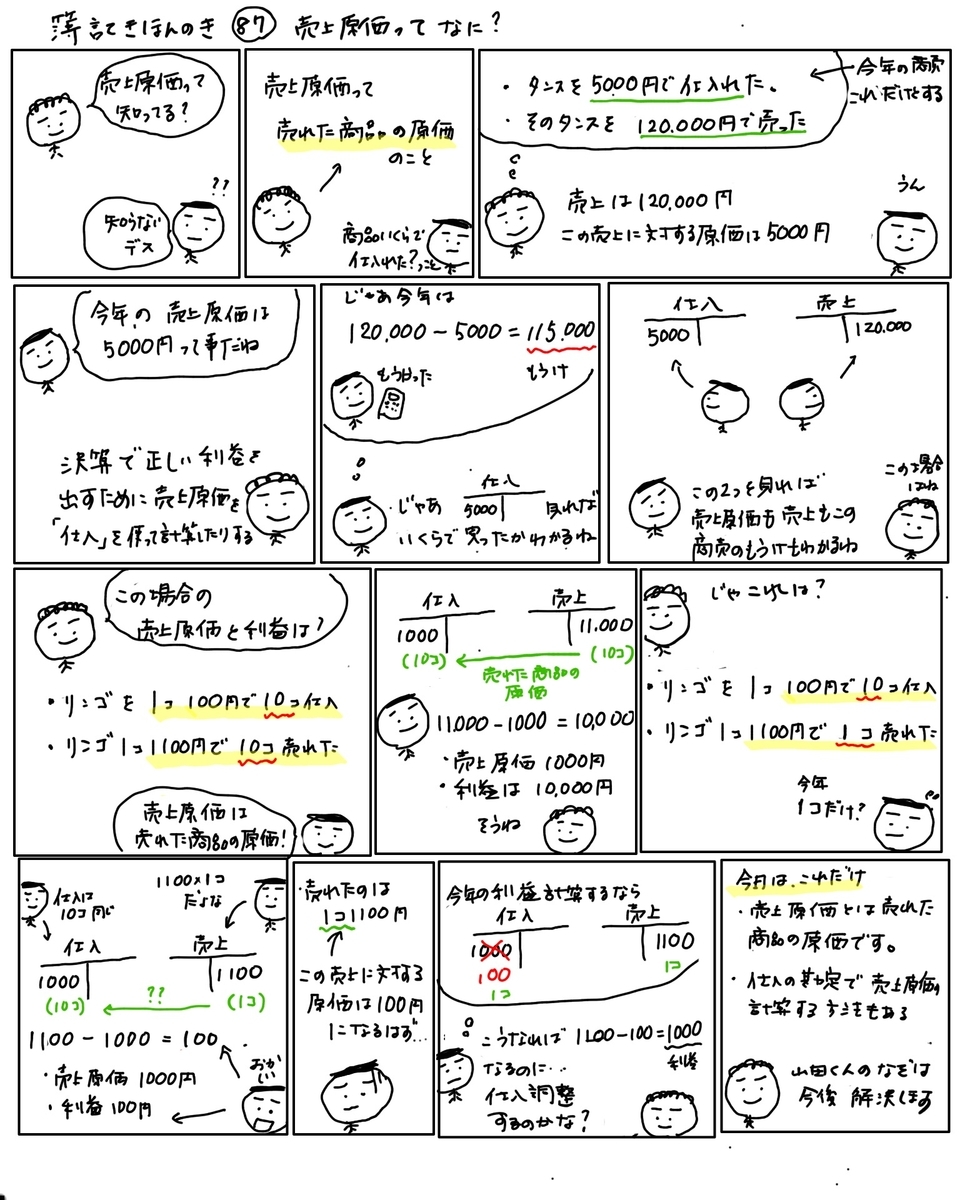 簿記きほんのき 87 売上原価ってなに?
売上原価って
知ってる?
??
知らない
デス
売上原価って
売れた商品の原価
のこと
商品いくらで
仕入れた?ってこと
・タンスを5000円で仕入れた。
・そのタンスを 120.000円で売った
今年の商売
これだけとする
売上は120,000円
この売上に対する原価は5000円
うん
今年の 売上原価は
5000円って事だね
決算で正しい利益を
出すために売上原価を
「仕入」を使って計算したりする
じゃあ今年は
120,000-5000=115.000
もうけ
もうかった
・じゃあ
仕入
5000
見れば
いくらで買ったかわかるね
仕入
5000
売上
120.000
この2つを見れば
売上原価も売上もこの
商売のもうけもわかるね
この場合
はね
この場合の
売上原価と利益は?
・リンゴを 1コ 100円で10コ仕入
・リンゴ1コ1100円で 10コ 売れた
売上原価は
売れた商品の原価!
仕入
1000
(10コ)
売上
11.000
(10コ)
売れた商品の
原価
11000-1000=10,000
・売上原価 1000円
・利益は 10,000円
そうね
じゃこれは?
・リンゴを 1コ 100円で10コ仕入
・リンゴ1コ1100円で 1コ 売れた
今年
1コだけ?
仕入は
10コ同じ
1100×1コ
だよな
仕入
1000
(10コ)
売上
1100
(1コ)
??
1100-1000=100
・売上原価 1000円
・利益100円
おかしい
・売れたのは
1コ1100円
この売上に対する
原価は100円
になるはず…
今年の利益計算するなら
仕入
1000
100
1コ
売上
1100
1コ
こうなれば 1100-100=1000
利益
なるのに…
仕入調整
するのかな?
今日は、これだけ
・売上原価とは売れた
商品の原価です。
・仕入の勘定で売上原価を
計算する方法もある
山田くんのなぞは
今後 解決します